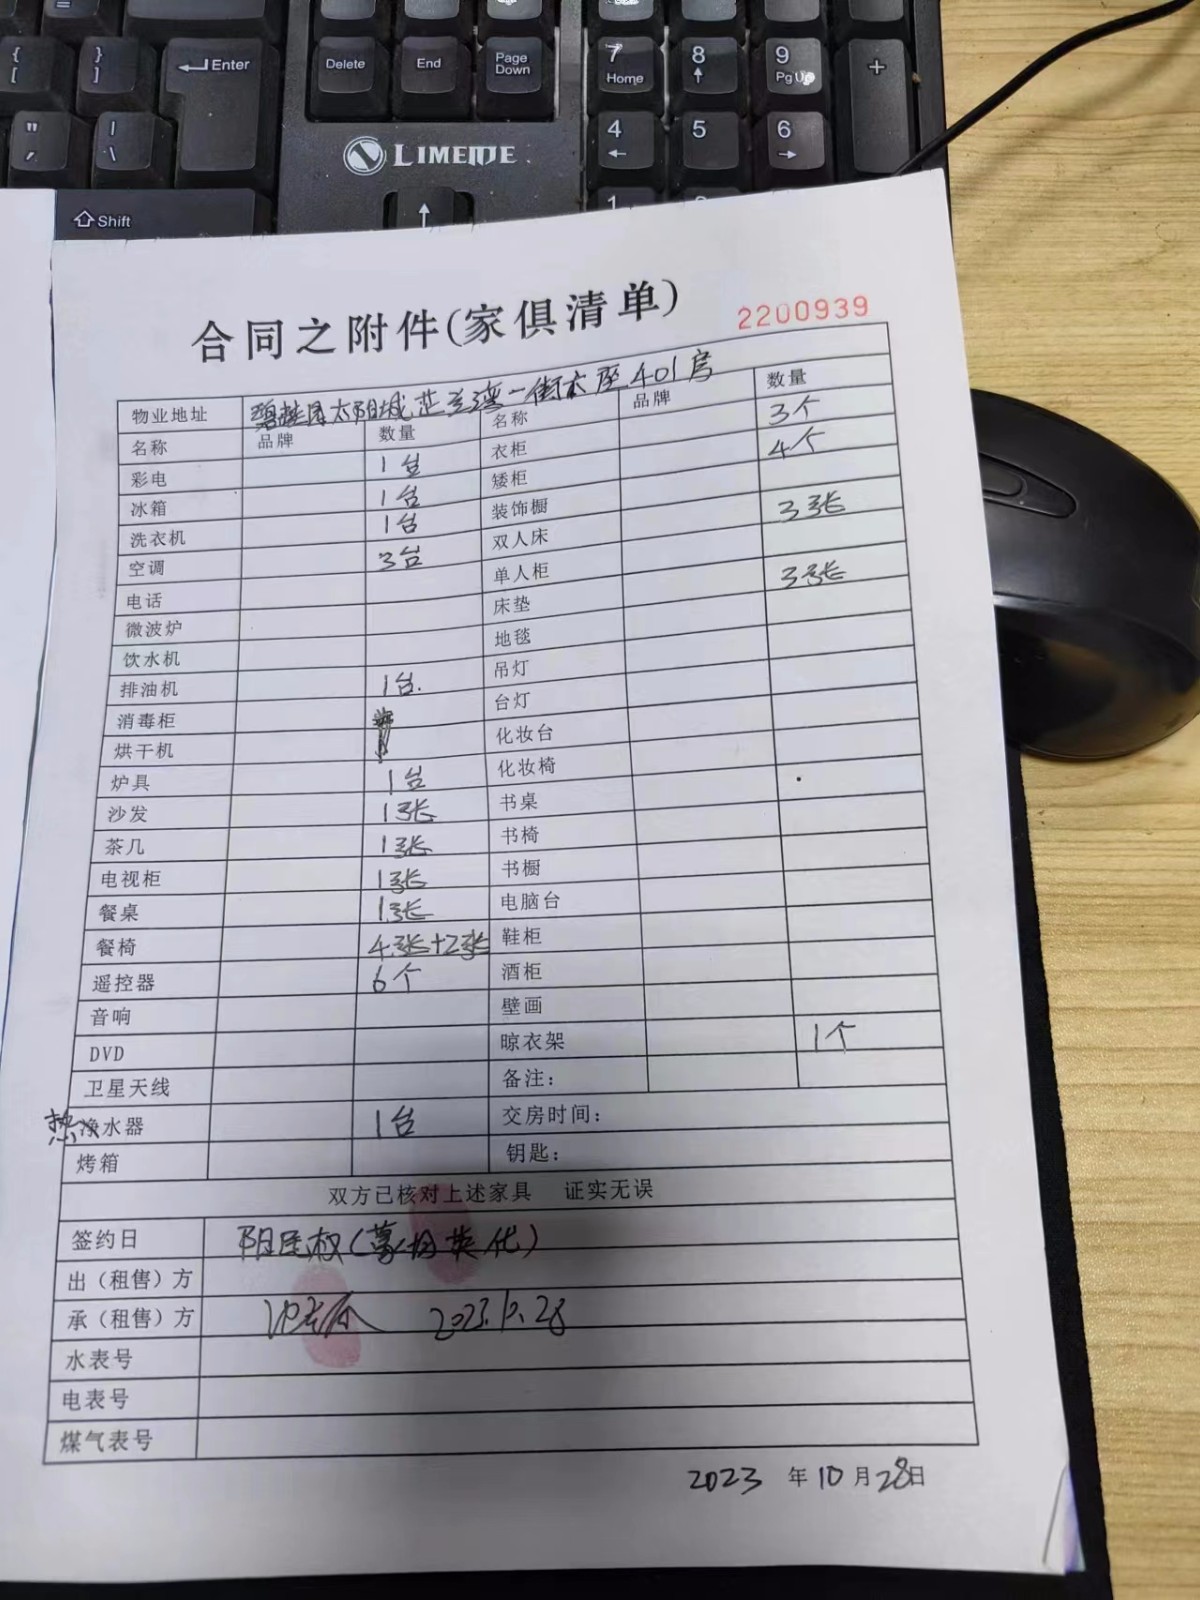 { [
} ]
Enter
Delete
End
Page Down
7 Home
8
9 PgUp
+
" '
| \
4
5
6
LIMEIDE
Shift
1
合同之附件(家俱清单)
2200939
物业地址 碧桂园太阳城 湾一街 座401房
名称 品牌 数量 名称 品牌 数量
彩电 1台 衣柜 3个
冰箱 1台 矮柜 4个
洗衣机 1台 装饰橱
空调 3台 双人床 3张
电话 单人柜
微波炉 床垫 3张
饮水机 地毯
排油机 1台. 吊灯
消毒柜 台灯
烘干机 化妆台
炉具 1台 化妆椅
沙发 1张 书桌
茶几 1张 书椅
电视柜 1张 书橱
餐桌 1张 电脑台
餐椅 4张+2张 鞋柜
遥控器 6个 酒柜
音响 壁画
DVD 晾衣架 1个
卫星天线 备注:
热净水器 1台 交房时间:
烤箱 钥匙:
双方已核对上述家具 证实无误
签约日
出（租售）方
承（租售）方 2023.10.28
水表号
电表号
煤气表号
2023 年 10 月 28日